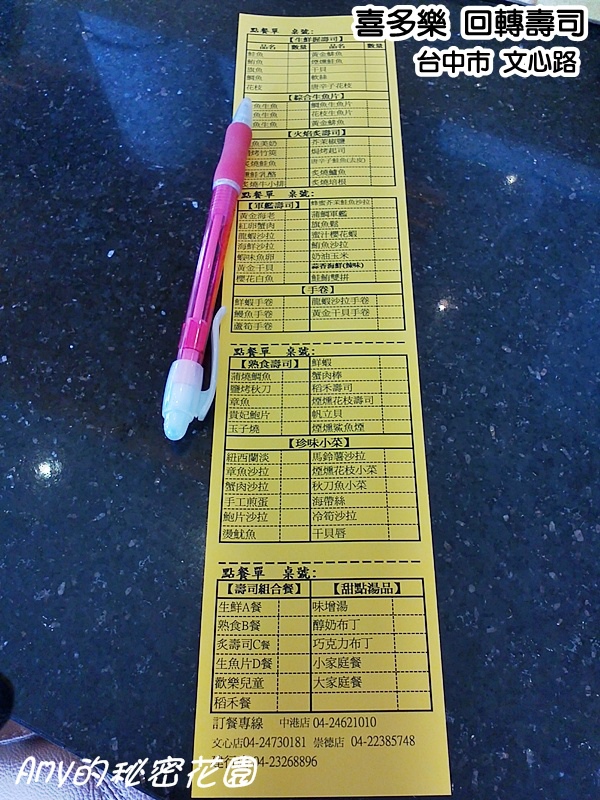 喜多樂 回轉壽司
台中市 文心路
點餐單 桌號:
【生鮮握壽司】
品名 數量 品名 數量
鮭魚 黃金鯡魚
鮪魚 煙燻鮭魚
旗魚 干貝
鯛魚 軟絲
花枝 唐辛子花枝
【綜合生魚片】
魚生魚 鯛魚生魚片
魚生魚 花枝生魚片
魚生魚 黃金鯡魚
【火焰炙壽司】
魚美奶 芥茉椒鹽
烤竹筴 焗烤起司
炙燒鮭魚 唐辛子鮭魚(去皮)
燻鮭乳酪 炙燒鱸魚
炙燒牛小排 炙燒培根
點餐單 桌號:
【軍艦壽司】 蜂蜜芥茉鮭魚沙拉
黃金海老 蒲鯛軍艦
紅卵蟹肉 旗魚鬆
龍蝦沙拉 蜜汁櫻花蝦
海鮮沙拉 鮪魚沙拉
蝦味魚卵 奶油玉米
黃金干貝 蒜香海鮮(辣味)
櫻花白魚 鮭鮪雙拼
【手卷】
鮮蝦手卷 龍蝦沙拉手卷
鰻魚手卷 黃金干貝手卷
蘆筍手卷
點餐單 桌號:
【熟食壽司】 鮮蝦
蒲燒鯛魚 蟹肉棒
鹽烤秋刀 稻禾壽司
章魚 煙燻花枝壽司
貴妃鮑片 帆立貝
玉子燒 煙燻鯊魚煙
【珍味小菜】
紐西蘭淡 馬鈴薯沙拉
章魚沙拉 煙燻花枝小菜
蟹肉沙拉 秋刀魚小菜
手工煎蛋 海帶絲
鮑片沙拉 冷筍沙拉
燙魷魚 干貝唇
點餐單 桌號:
【壽司組合餐】 【甜點湯品】
生鮮A餐 味增湯
熟食B餐 醇奶布丁
炙壽司C餐 巧克力布丁
生魚片D餐 小家庭餐
歡樂兒童 大家庭餐
稻禾餐
訂餐專線 中港店 04-24621010
文心店04-24730181 崇德店 04-22385748
04-23268896
Any的秘密花園